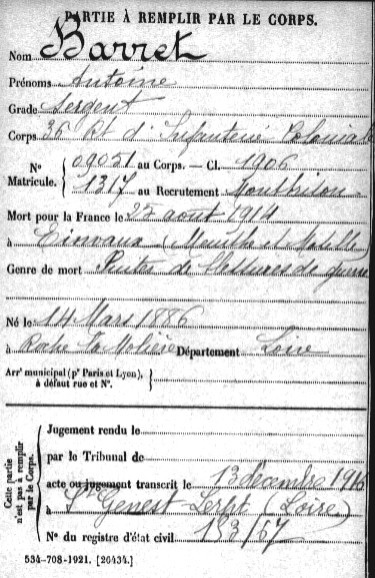 PARTIE À REMPLIR PAR LE CORPS.
Nom Barret
Prénoms Antoine
Grade Sergent
Corps 36 Rt d'Infanterie Coloniale
N° Matricule. { 09051 au Corps. — Cl. 1906
1317 au Recrutement Montbrison
Mort pour la France le 25 août 1914
à Einvaux (Meurthe et Moselle)
Genre de mort Suites de blessures de guerre
Né le 14 Mars 1886
à Roche la Molière Département Loire
Arrt municipal (pr Paris et Lyon), à défaut rue et N°. }
Cette partie n'est pas à remplir par le Corps.
Jugement rendu le
par le Tribunal de
acte ou jugement transcrit le 13 décembre
à St Genest-Lerpt (Loire)
N° du registre d'état civil 133/67
534-708-1921. [26434.]